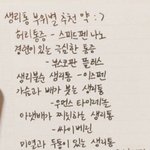 생리통 부위별 추천 약 : >
허리통증 - 스피드펜 나노
경련이 있는 극심한 통증
- 부스코판 플러스
생리불순 생리통 - 이즈펜
가슴과 배가 붓는 생리통
- 우먼스 타이레놀
아랫배가 찌릿하는 생리통
- 싸이베린
미열과 두통이 있는 생리통